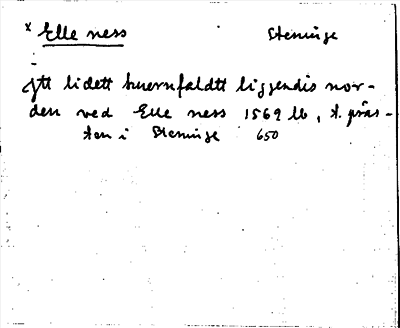 x Elle ness Steninge
Jtt lidett huernfaldtt liggendis nor-
den ved Elle ness 1569 lb, t. präs-
ten i Steninge 650